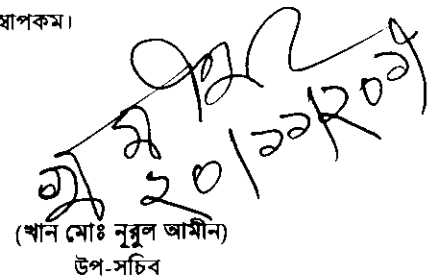 স্বাপকম।
২০/১১/২০১
(খান মোঃ নূরুল আমীন)
উপ-সচিব